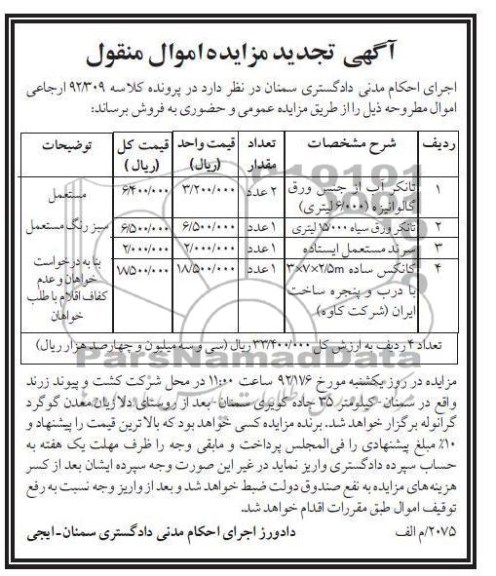 آگهی تجدید مزایده اموال منقول
اجرای احکام مدنی دادگستری سمنان در نظر دارد در پرونده کلاسه ۹۲/۳۰۹ ارجاعی
اموال مطروحه ذیل را از طریق مزایده عمومی و حضوری به فروش برساند:
ردیف شرح مشخصات تعداد مقدار قیمت واحد (ریال) قیمت کل (ریال) توضیحات
۱ تانکر آب از جنس ورق ۲ عدد ۳/۲۰۰/۰۰۰ ۶/۴۰۰/۰۰۰ مستعمل
گالوانیزه (۶/۰۰۰ لیتری)
۲ تانکر ورق سیاه ۱۵۰۰۰ لیتری ۱ عدد ۶/۵۰۰/۰۰۰ ۶/۵۰۰/۰۰۰ سبز رنگ مستعمل
۳ سرند مستعمل ایستاده ۱ عدد ۲/۰۰۰/۰۰۰ ۲/۰۰۰/۰۰۰
۴ کانکس ساده ۳×۷×۲/۵m ۱ عدد ۱۸/۵۰۰/۰۰۰ ۱۸/۵۰۰/۰۰۰ بنا به درخواست
با درب و پنجره ساخت خواهان و عدم
ایران (شرکت کاوه) کفاف اقلام با طلب
خواهان
تعداد ۴ ردیف به ارزش کل ۳۳/۴۰۰/۰۰۰ ریال (سی و سه میلیون و چهارصد هزار ریال)
ParsNamadData
مزایده در روز یکشنبه مورخ ۹۲/۱۷/۶ ساعت ۱۱:۰۰ در محل شرکت کشت و پیوند زرند
واقع در سمنان کیلومتر ۳۵ جاده کویری سمنان بعد از روستای دلازیان معدن گوگرد
گرانوله برگزار خواهد شد. برنده مزایده کسی خواهد بود که بالاترین قیمت را پیشنهاد و
۱۰٪ مبلغ پیشنهادی را فی‌المجلس پرداخت و مابقی وجه را ظرف مهلت یک هفته به
حساب سپرده دادگستری واریز نماید در غیر این صورت وجه سپرده ایشان بعد از کسر
هزینه‌های مزایده به نفع صندوق دولت ضبط خواهد شد و بعد از واریز وجه نسبت به رفع
توقیف اموال طبق مقررات اقدام خواهد شد.
۲۰۷۵/م الف دادورز اجرای احکام مدنی دادگستری سمنان-ایجی